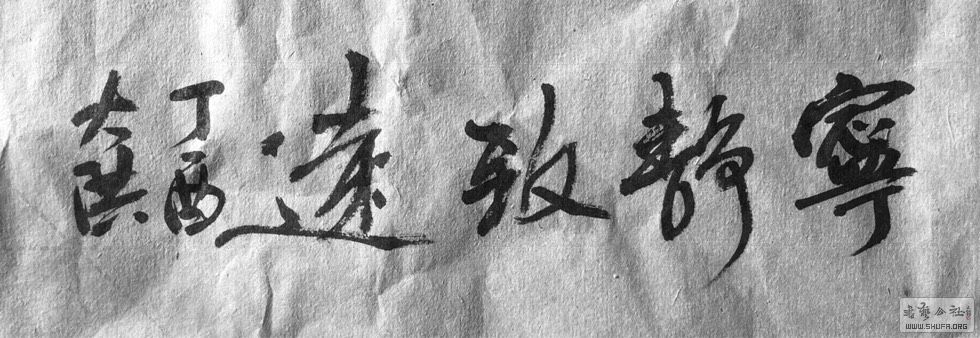 寧靜致遠
丁酉
大洪
書藝公社
WWW.SHUFA.ORG